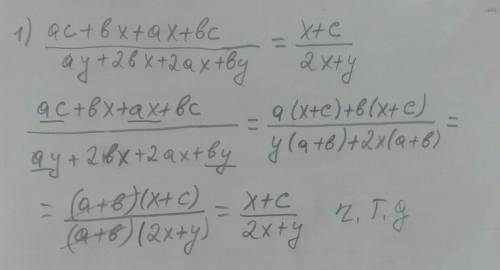 1) (ac+вx+ax+вc)/(ay+2вx+2ax+вy) = (x+c)/(2x+y)
(ac+вx+ax+вc)/(ay+2вx+2ax+вy) = (a(x+c)+в(x+c))/(y(a+в)+2x(a+в)) =
= ((a+в)(x+c))/((a+в)(2x+y)) = (x+c)/(2x+y) ч.т.д